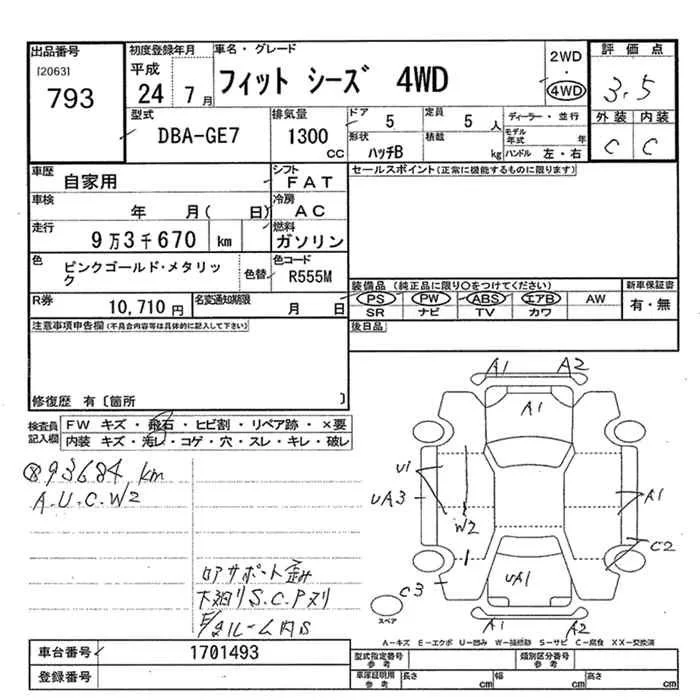 出品番号 初度登録年月 車名・グレード 評価点
[2063]
793
平成 24年 7月 フィット シーズ 4WD 2WD・4WD 3.5
型式 DBA-GE7 排気量 1300 CC
ドア 5 定員 5人 ディーラー・並行 外装 内装
形状 ハッチB 積載 kg モデル年式 年 C C
ハンドル 左・右
車歴 自家用 シフト FAT セールスポイント(正常に機能するものに限ります)
車検 年 月( 日) 冷房 AC
走行 9万3千670 km 燃料 ガソリン
色 ピンクゴールド・メタリック 色替 色コード R555M
装備品 (純正品に限り○をつけてください) 新車保証書
R券 10,710円 名変通知期限 月 日
PS PW ABS エアB AW 有・無
SR ナビ TV カワ
注意事項申告欄(不具合内容等は具体的に記入して下さい) 後日品
修復歴 有〔箇所 〕
検査員記入欄
FW キズ・飛石・ヒビ割・リペア跡・×要
内装 キズ・汚レ・コゲ・穴・スレ・キレ・破レ
93684 km
A.U.C.W2
A1 A2
A1
U1
UA3 W2 A1
C2
C3 UA1
A1 A2
スペア
下廻りS.C.Pヌリ
A-キズ E-エクボ U-凹み W-補修跡 S-サビ C-腐食 XX-交換済
車台番号 1701493
型式指定番号 参考 類別区分番号 参考
登録番号 車庫証明用 参考 長さ cm 幅 cm 高さ cm